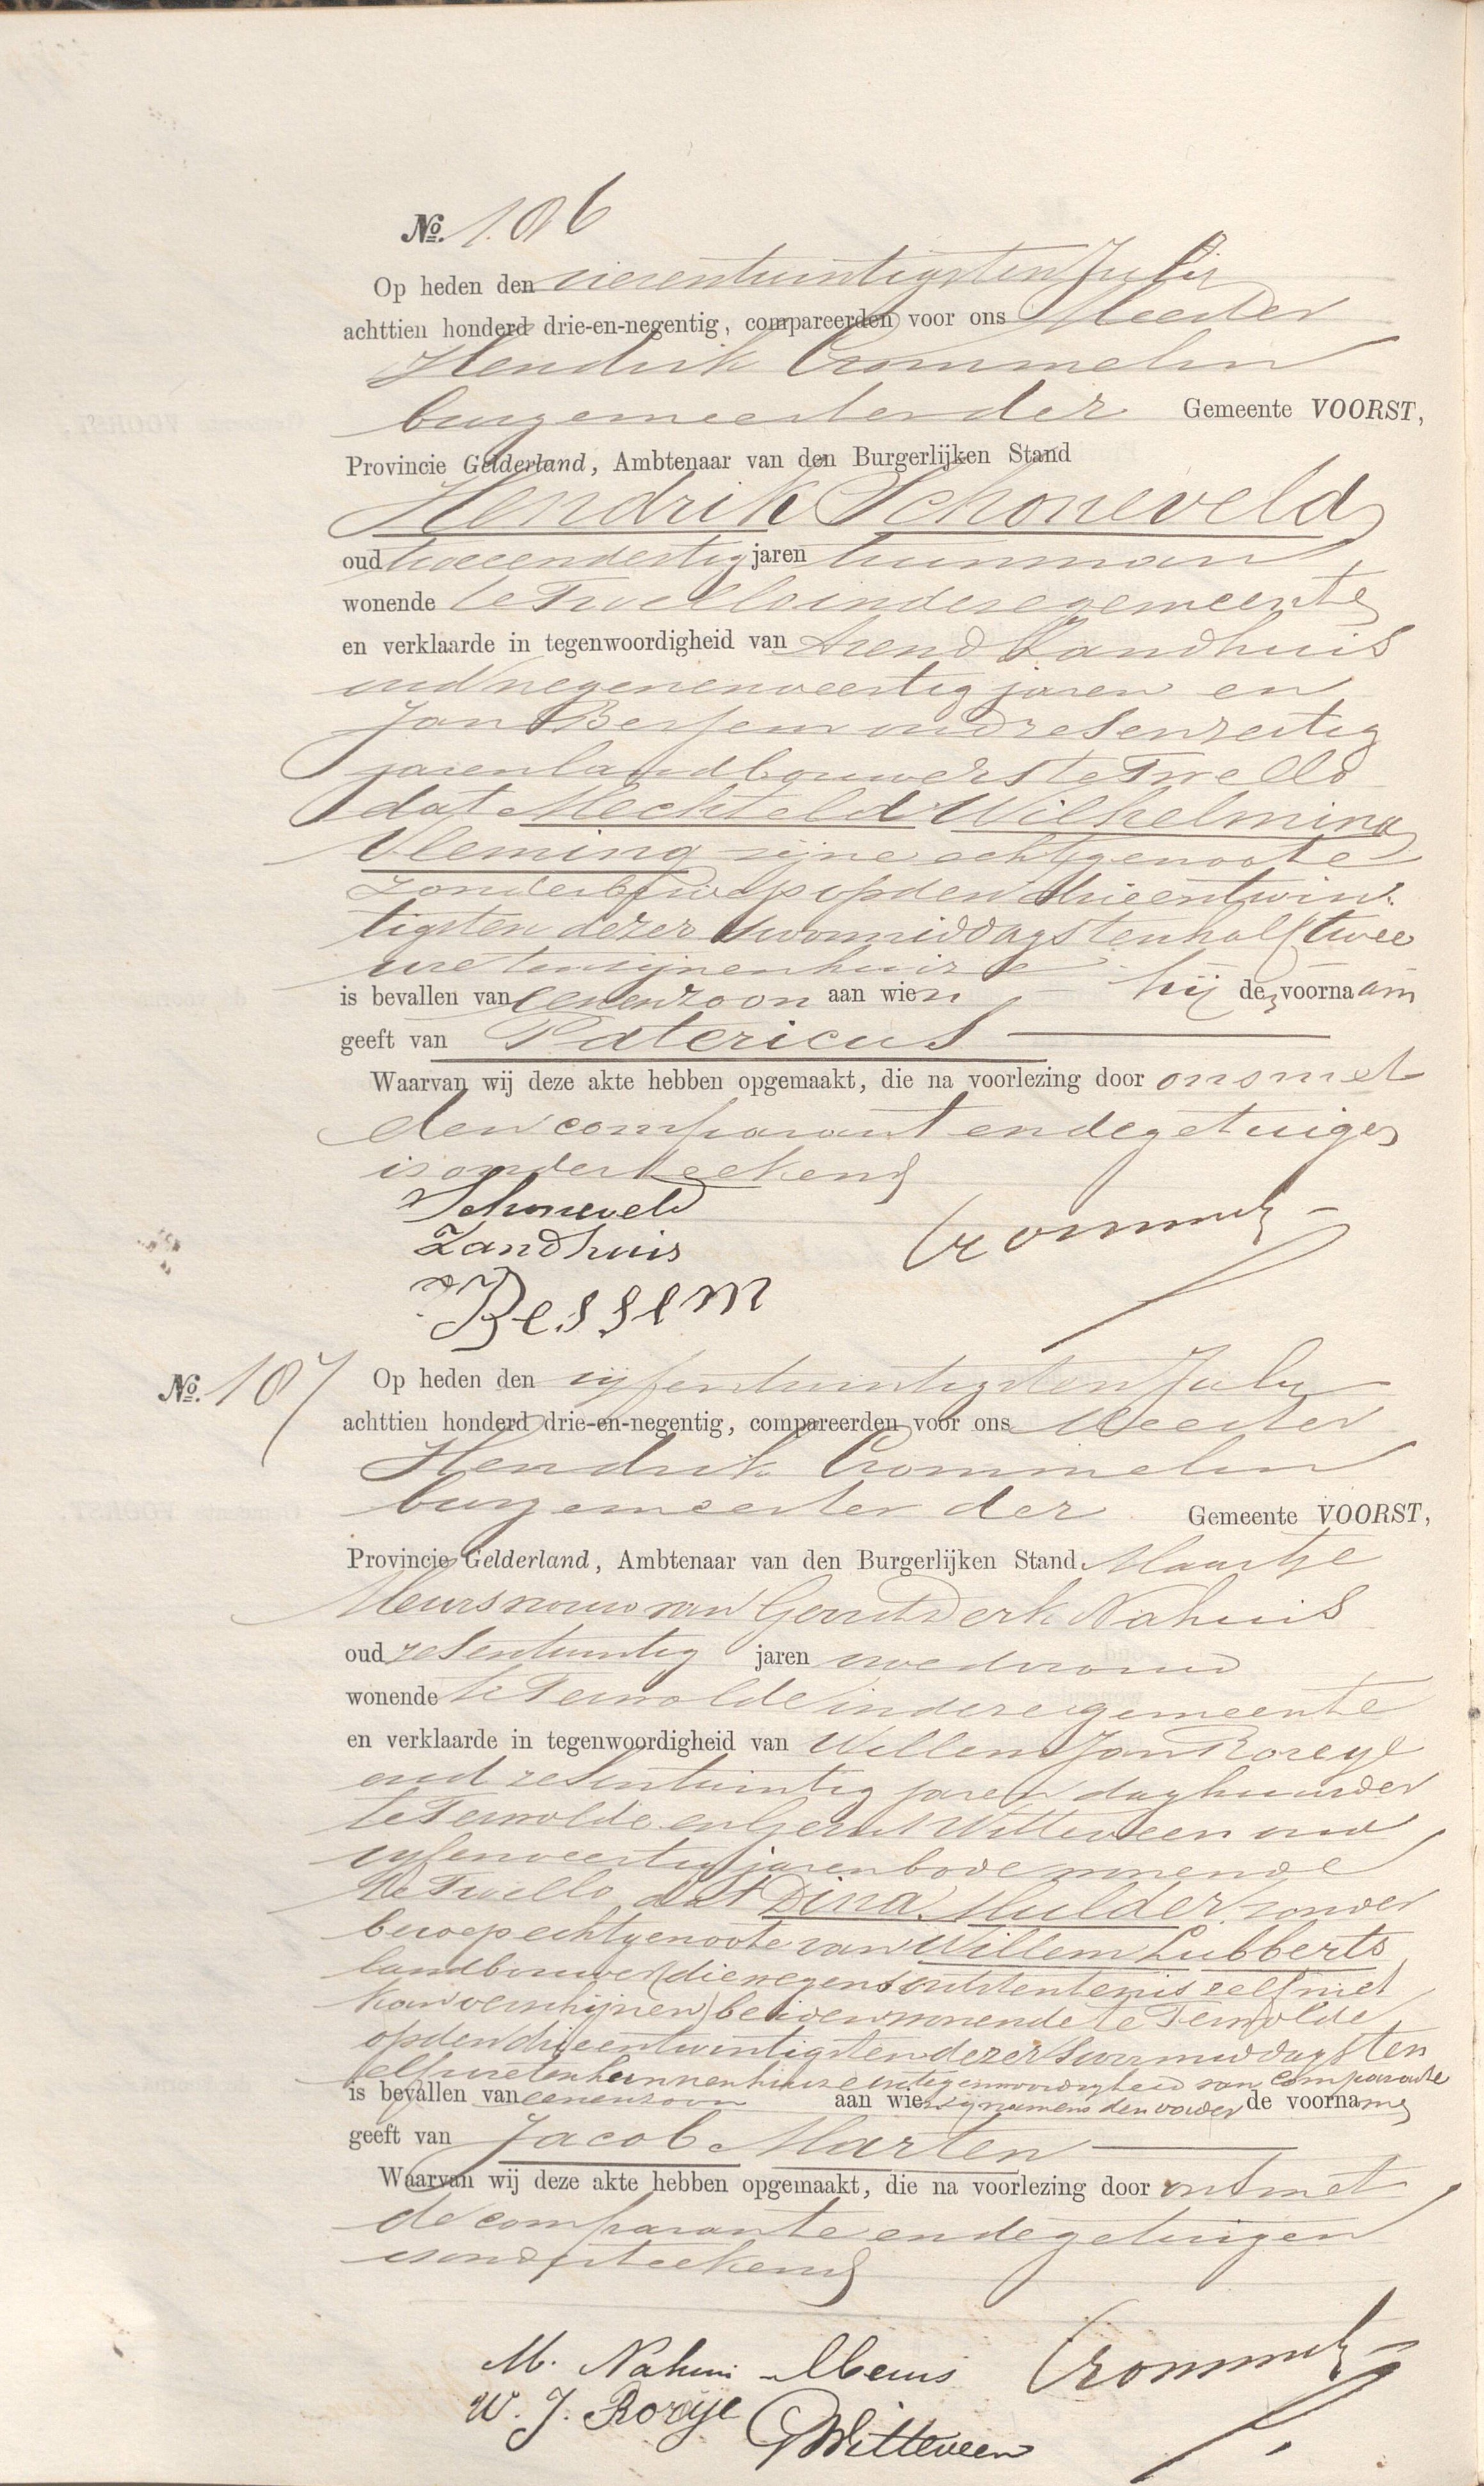 No. 186
Op heden den vierentwintigsten Julij
achttien honderd drie-en-negentig, compareerden voor ons Meester
Hendrik Crommelin
burgemeester der Gemeente VOORST,
Provincie Gelderland, Ambtenaar van den Burgerlijken Stand
Hendrik Schoneveld
oud tweeendertig jaren tuinman
wonende te Twello in deze gemeente
en verklaarde in tegenwoordigheid van Arend Zandhuis
oud negenenveertig jaren en
Jan Bessem oud zesenzestig
jaren landbouwers te Twello
dat Mechteld Wilhelmina
Vleming zijne echtgenoote
zonder beroep op den drieentwin-
tigsten dezer voormiddags ten half twee
ure ten zijnen huize
is bevallen van eenen zoon aan wien hij den voornaam
geeft van Patericus
Waarvan wij deze akte hebben opgemaakt, die na voorlezing door ons met
den comparant en de getuigen
is onderteekend
Schoneveld
Zandhuis Crommelin
Bessem
No. 187 Op heden den vijfentwintigsten July
achttien honderd drie-en-negentig, compareerden voor ons Meester
Hendrik Crommelin
burgemeester der Gemeente VOORST,
Provincie Gelderland, Ambtenaar van den Burgerlijken Stand Maartje
Meurs vrouw van Gerrit Derk Nahuis
oud zesentwintig jaren vroedvrouw
wonende te Terwolde in deze gemeente
en verklaarde in tegenwoordigheid van Willem Jan Rozeije
oud zesentwintig jaren daghuurder
te Terwolde en Gerrit Witteveen oud
vijfenveertig jaren bode wonende
te Twello dat Dina Mulder zonder
beroep echtgenoote van Willem Lubberts
landbouwer (die wegens ontstentenis zelf niet
kan verschijnen) beiden wonende te Terwolde
op den drieentwintigsten dezer voormiddags ten
elf ure ten hunnen huize in tegenwoordigheid van comparante
is bevallen van eenen zoon aan wien zij namens den vader de voornamen
geeft van Jacob Marten
Waarvan wij deze akte hebben opgemaakt, die na voorlezing door ons met
de comparante en de getuigen
is onderteekend
M. Nahuis Meurs Crommelin
W. J. Rozije
G Witteveen